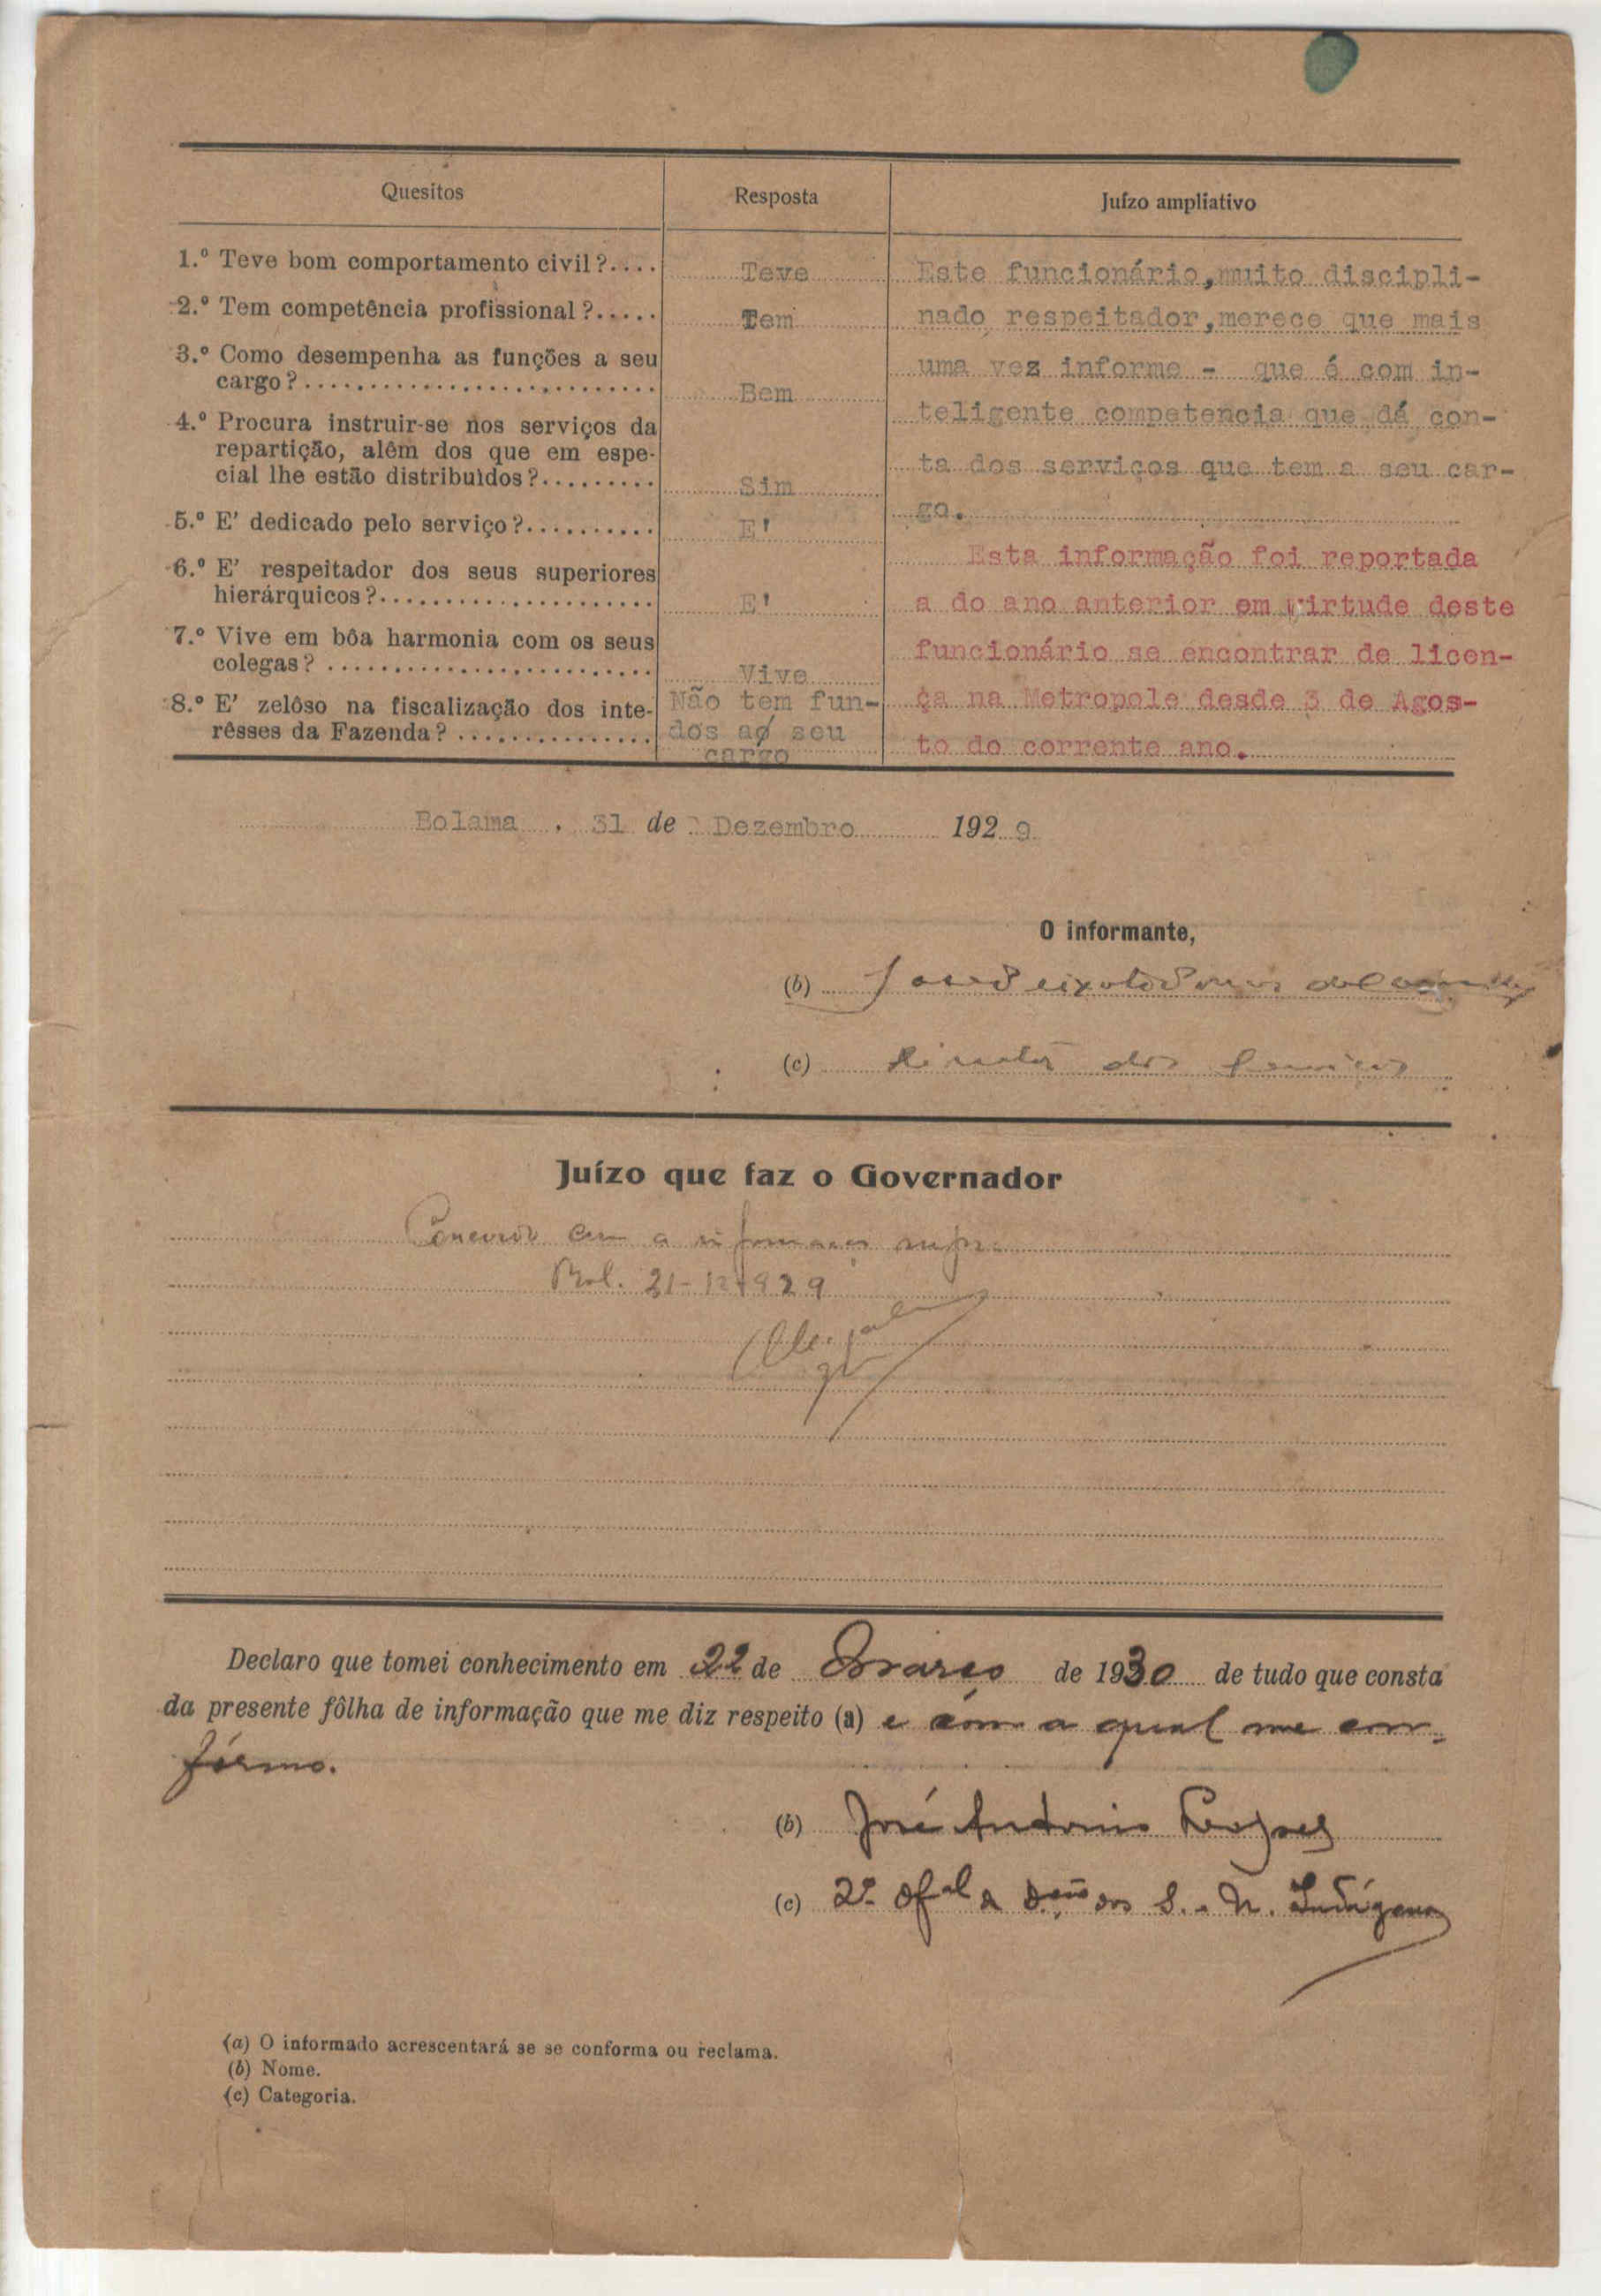 Quesitos
Resposta
Juízo ampliativo
1.º Teve bom comportamento civil?....
Teve
2.º Tem competência profissional?.....
Tem
3.º Como desempenha as funções a seu
cargo?...........................
Bem
4.º Procura instruir-se nos serviços da
repartição, alêm dos que em espe-
cial lhe estão distribuìdos?.........
Sim
5.º E' dedicado pelo serviço?..........
E'
6.º E' respeitador dos seus superiores
hierárquicos?.....................
E'
7.º Vive em bôa harmonia com os seus
colegas?.........................
Vive
8.º E' zelôso na fiscalização dos inte-
rêsses da Fazenda?...............
Não tem fun-
dos ao seu
cargo
Este funcionário,muito discipli-
nado respeitador,merece que mais
uma vez informe - que é com in-
teligente competencia que dá con-
ta dos serviços que tem a seu car-
go.
Esta informação foi reportada
a do ano anterior em virtude deste
funcionário se encontrar de licen-
ça na Metropole desde 3 de Agos-
to do corrente ano.
Bolama, 31 de Dezembro 1929
O informante,
(b) José Peixoto
(c) Director dos Serviços
Juízo que faz o Governador
Concordo com a informação supra
Bol. 31-12-929
Declaro que tomei conhecimento em 22 de Março de 1930 de tudo que consta
da presente fôlha de informação que me diz respeito (a) e com a qual me con-
fórmo.
(b) José Antonio
(c) 2.º Ofal da Dão dos S. N. Indígenas
(a) O informado acrescentará se se conforma ou reclama.
(b) Nome.
(c) Categoria.